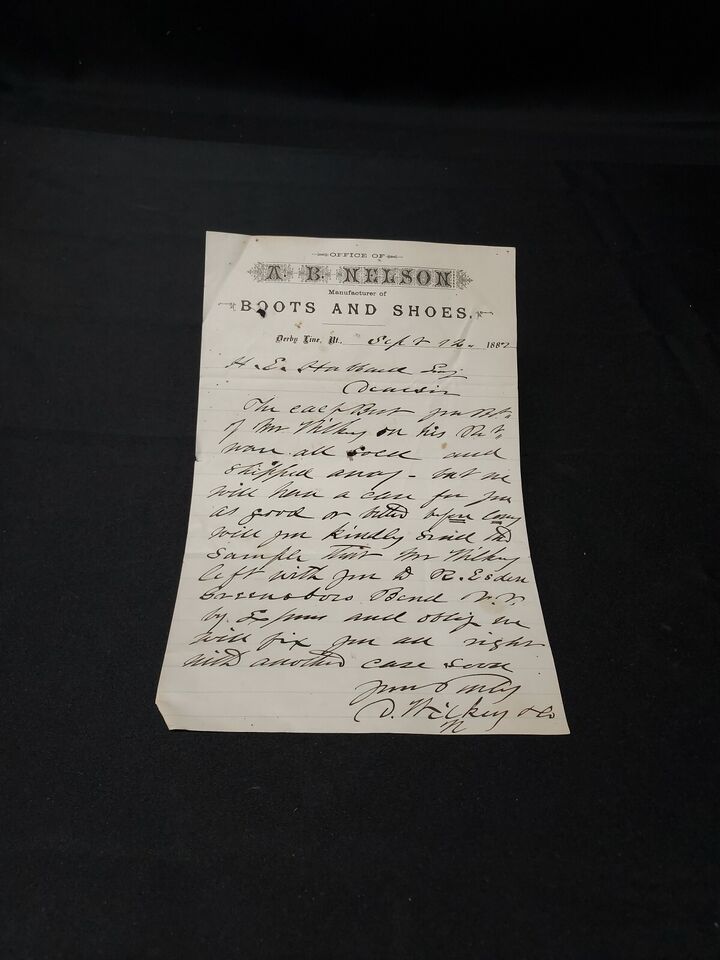 OFFICE OF
A. B. NELSON
Manufacturer of
BOOTS AND SHOES.
Derby Line, Vt. Sept 12 1882
H. E. Esq
Dear Sir
The calf Boot you
of Mr Wilkey on his
ware all sold and
shipped away - but we
will have a case for you
as good or before long
will you kindly send the
Sample that Mr Wilkey
left with you to R. Esden
Greensboro Bend V.T.
by Express and oblige we
will fix you all right
with another case soon
your truly
D. Wilkey & Co
N